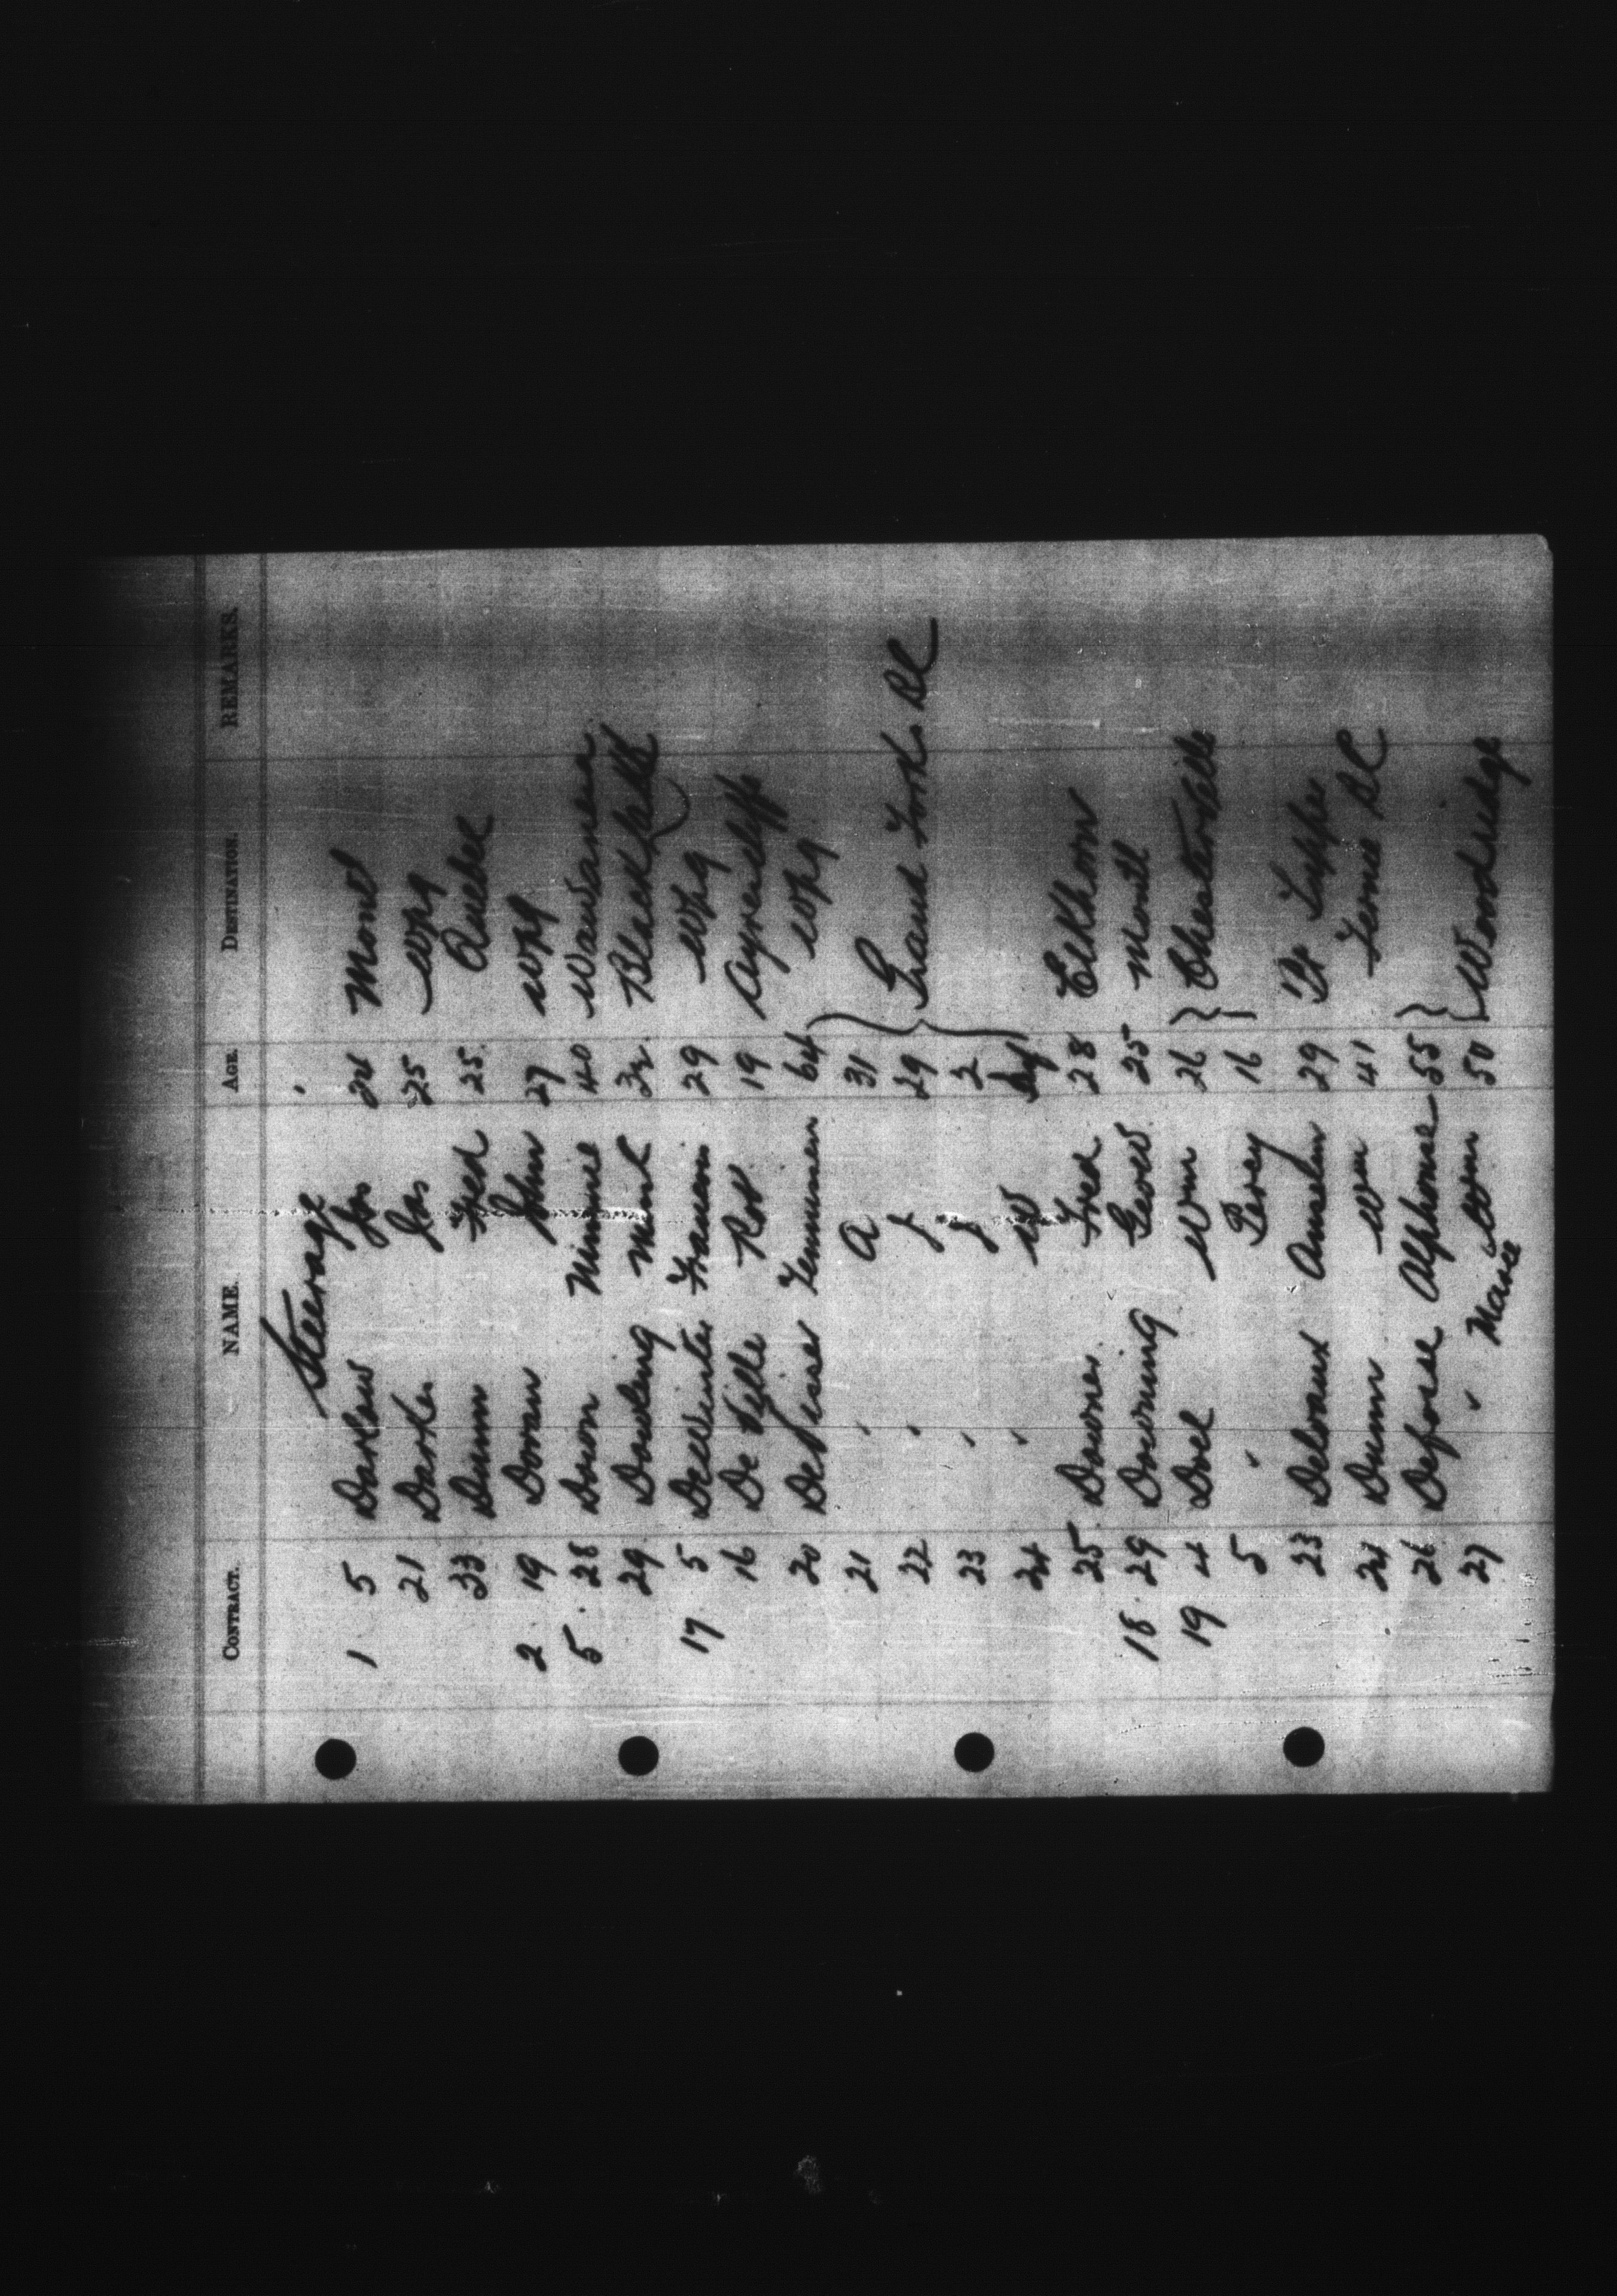 CONTRACT. NAME. AGE. DESTINATION. REMARKS.
Steerage
1 5 Darlow Jos 24 Mont
21 Darter Jas 25 Wpg
33 Dunn Fred 25 Quebec
2 19 Doran John 27 Wpg
5 28 Down Minnie 40 Wawanesa
29 Dowling 32 Black
17 5 DeWinter 29 Wpg
16 De Ville Rob 19
20 De 64 Wpg
21 " A 31
22 " J 29 Grand Forks BC
23 " J 2
24 " W
25 Downer Fred 28 Elkhorn
18 29 Downing Geo 25 Montl
19 4 Doel Wm 26 Chesterville
5 " Percy 16
23 Delvaux Anselm 29 Pt
24 Dunn Wm 41 Fernie BC
26 Defosse Alphonse 55
27 " 50 Woodridge
Marie